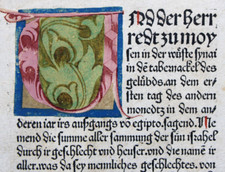 Und der herr
redt zu moy
sen in der wüste synai
in dē tabernackel des
gelübds. an dem er
sten tag des andern
monedtz in dem an⸗
deren iar irs außgangs vō egipto. sagend. Ne
mend die summe aller sammung der sün israhel
durch ir geschlecht vnd heuser. vnd die namē ir
aller. was da sey mennliches geschlechts. von